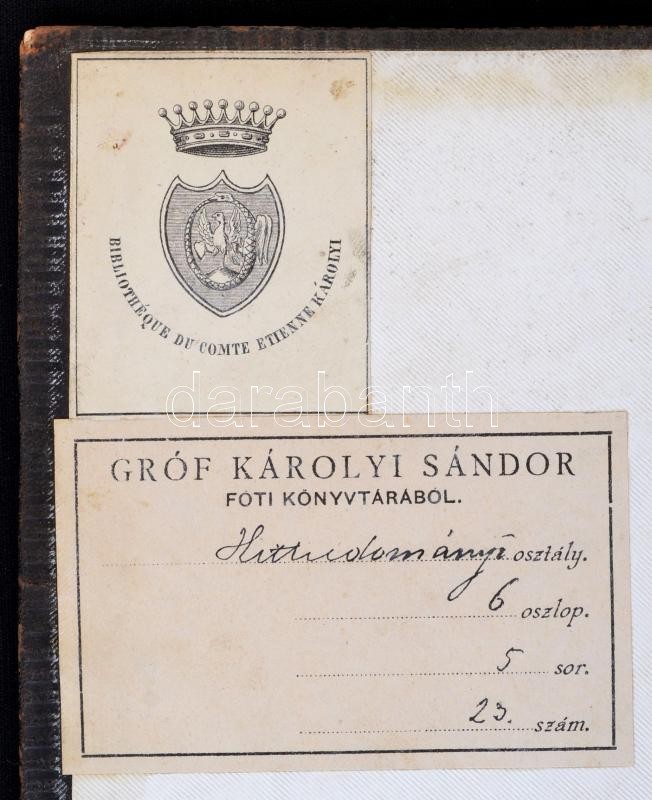 BIBLIOTHÉQUE DU COMTE ETIENNE KÁROLYI
darabanth
GRÓF KÁROLYI SÁNDOR
FÓTI KÖNYVTÁRÁBÓL.
Hittudományi osztály.
6 oszlop.
5 sor.
23. szám.